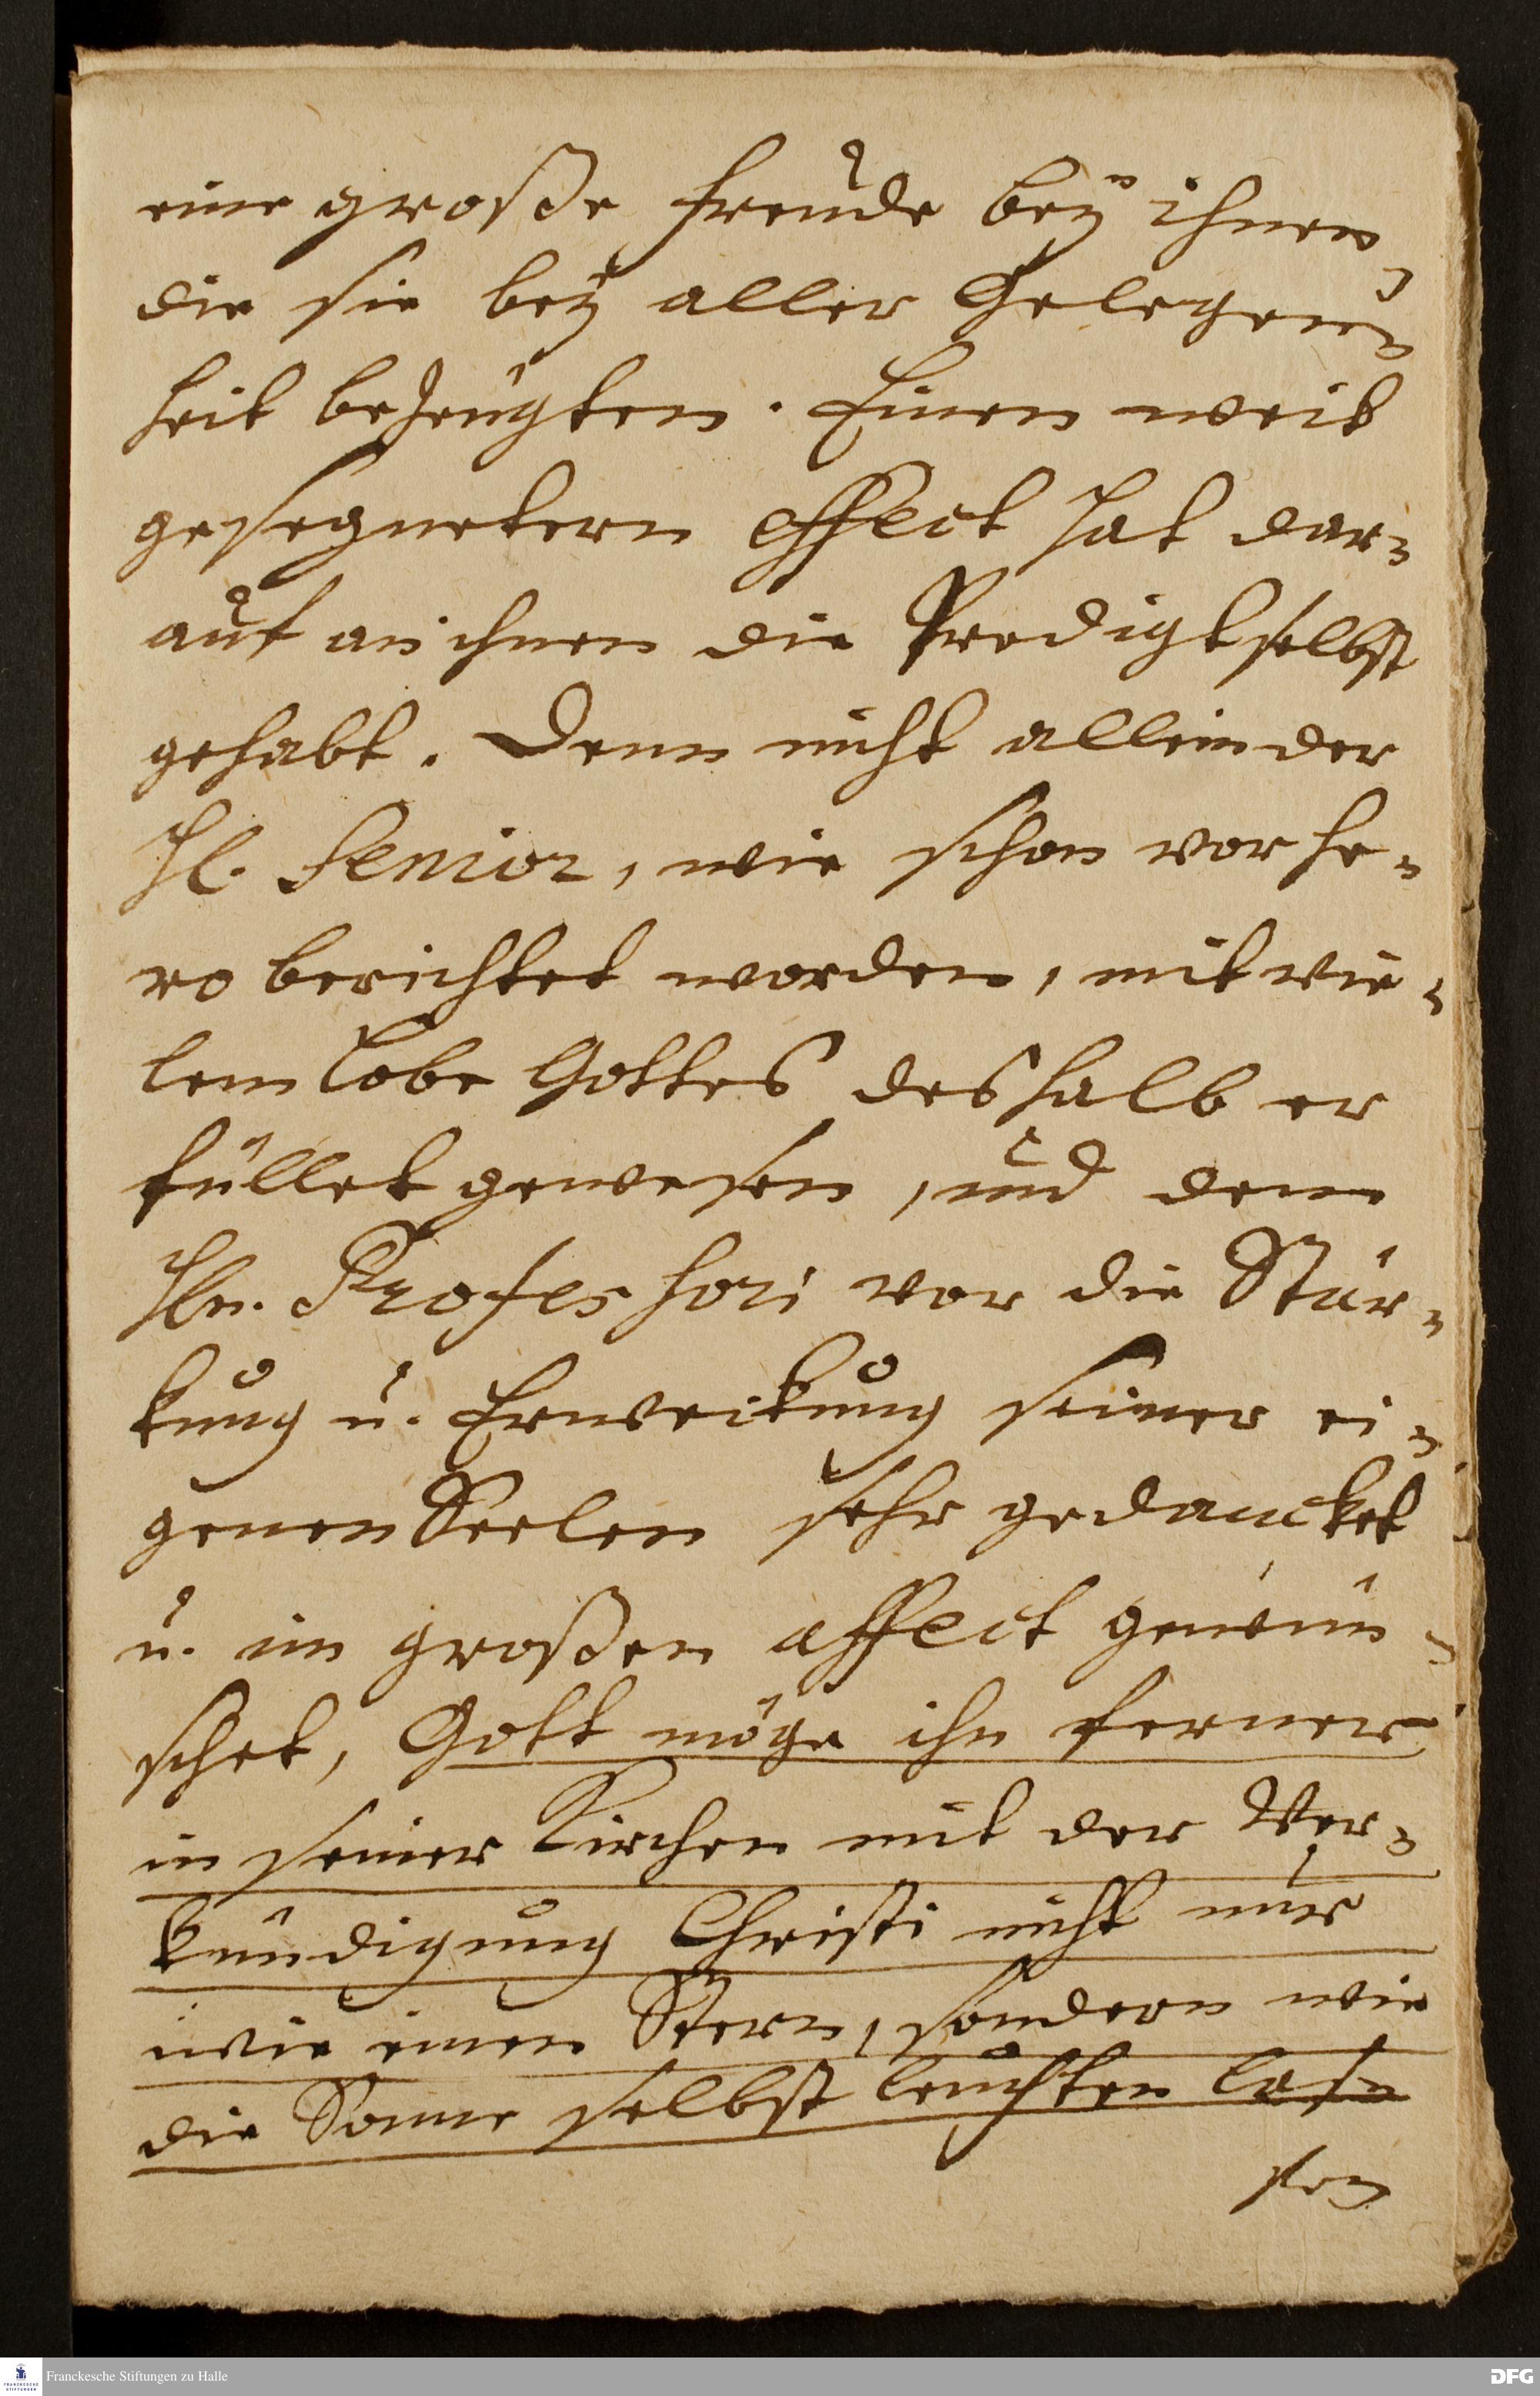 eine große Freude beÿ ihnen,
die sie beÿ aller Gelegen-
heit bezeugten. Einen weit
gesegnetern effect hat dar-
auf an ihnen die Predigt selbst
gehabt. Denn nicht allein der
Hl. Senior, wie schon vorhe-
ro berichtet worden, mit vie-
lem Lobe Gottes deshalb er
füllet gewesen, und dem
Hln. Professori vor die Stär-
kung u. Erweckung seiner ei-
genen Seelen sehr gedancket
u. im großen affect gewün-
schet, Gott möge ihn ferner
in seiner Kirchen mit der Ver-
kündigung Christi nicht nur
wie einen Stern, sondern wie
die Sonne selbst leuchten laßen
sen
Franckesche Stiftungen zu Halle
DFG